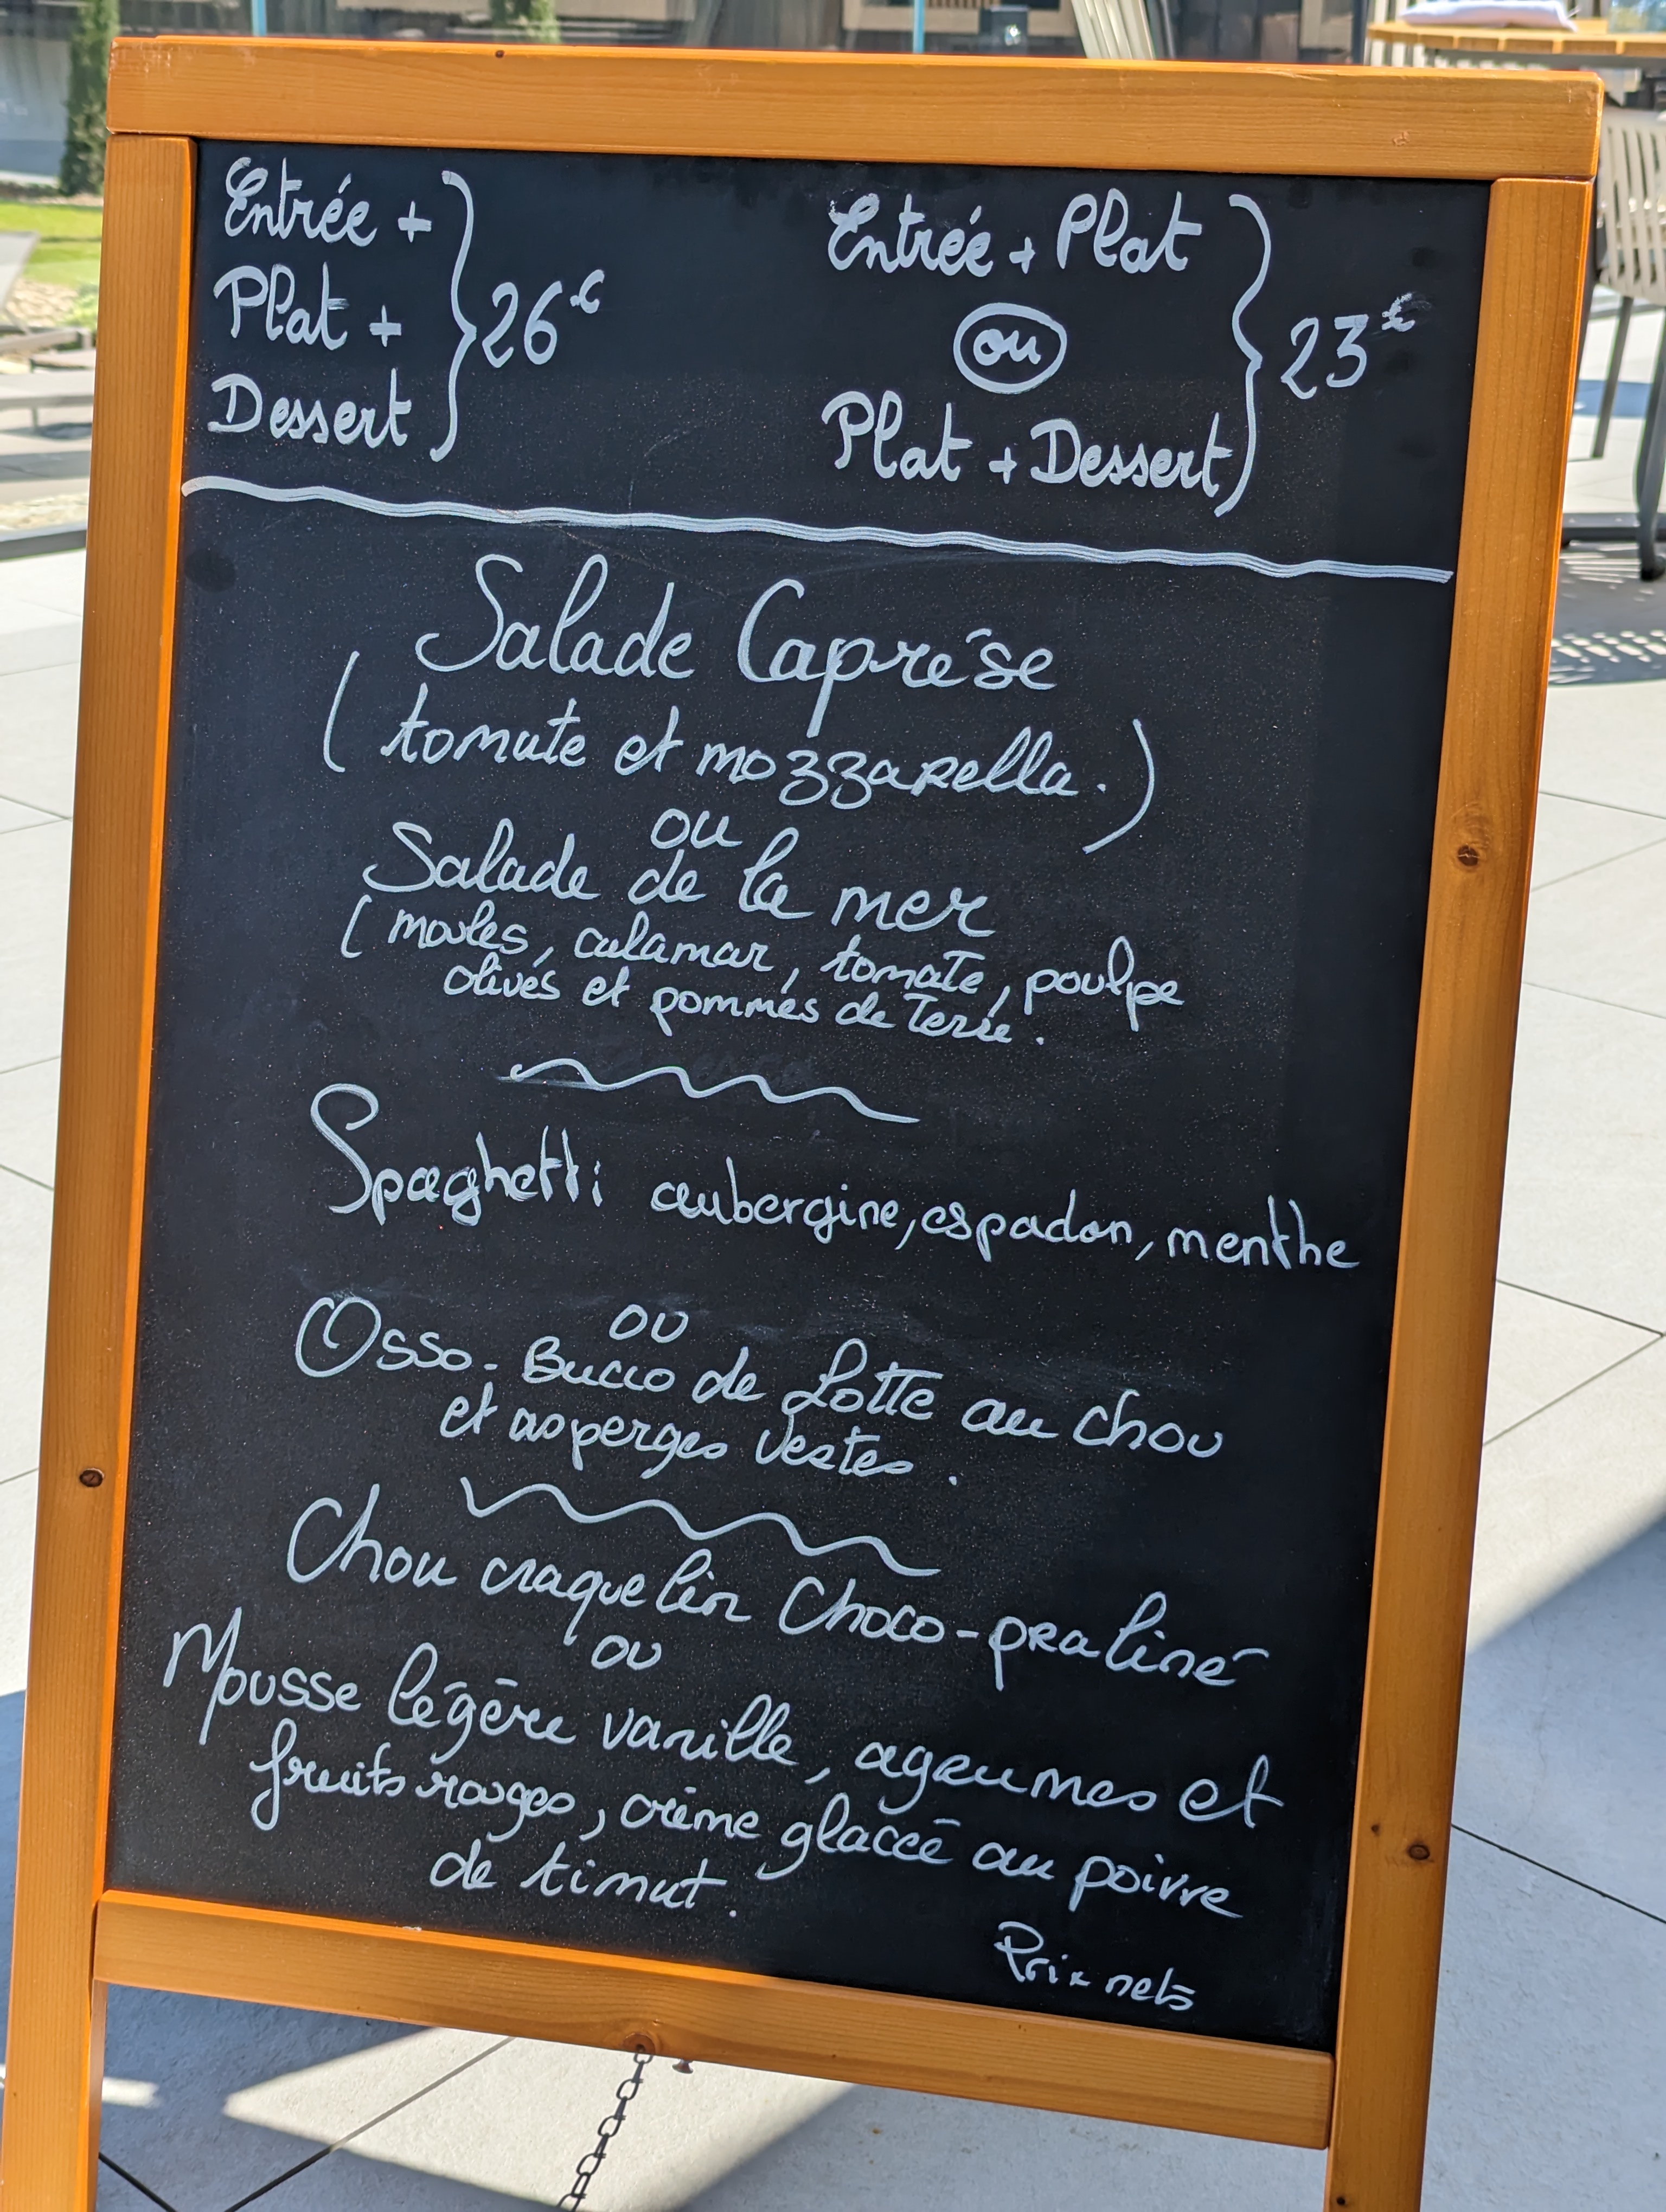 Entrée +
Plat +
Dessert
26€
Entrée + Plat
ou
Plat + Dessert
23€
Salade Caprése
(tomate et mozzarella.)
ou
Salade de la mer
(moules, calamar, tomate, poulpe
olives et pommes de Terre.
Spaghetti aubergine, espadon, menthe
ou
Osso-Bucco de Lotte au chou
et asperges vertes.
Chou craquelin Choco-praliné
ou
Mousse légère vanille, agrumes et
fruits rouges, crème glacée au poivre
de timut.
Prix nets